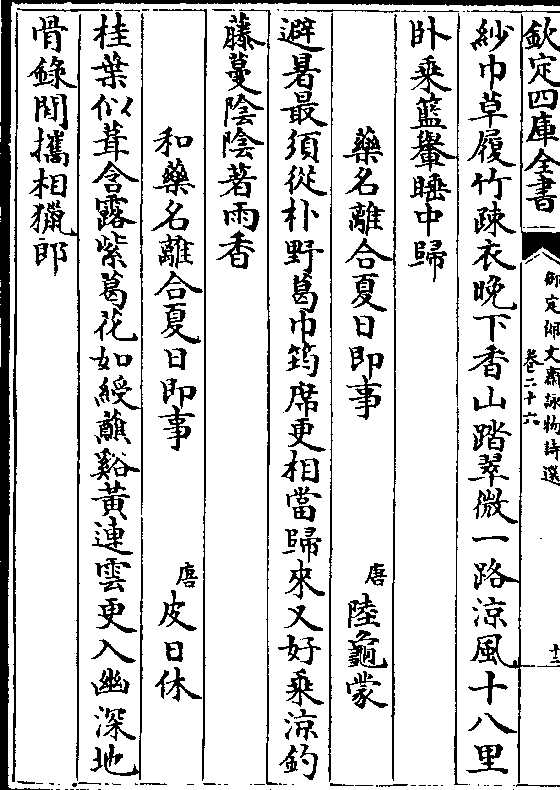 欽定四庫全書
御定佩文齋詠物詩選
卷二十六
十三
紗巾草履竹疎衣晚下香山踏翠微一路涼風十八里
卧乘籃轝睡中歸
藥名離合夏日即事
唐
陸龜蒙
避暑最須從朴野葛巾筠席更相當歸來又好乘涼釣
藤蔓陰陰著雨香
和藥名離合夏日即事
唐
皮日休
桂葉似茸含露紫葛花如綬蘸谿黃連雲更入幽深地
骨錄閒攜相獵郎